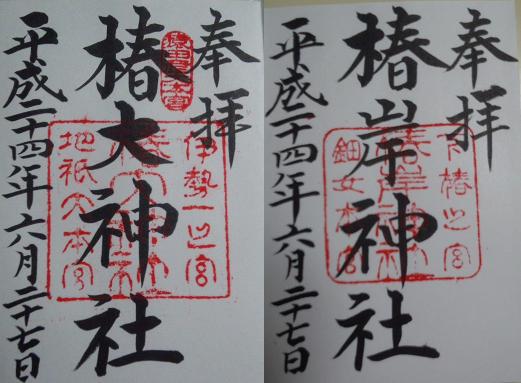 奉拝
椿大神社
伊勢一之宮
地祇大本宮
平成二十四年六月二十七日
奉拝
椿岸神社
椿岸神社
鈿女本宮
平成二十四年六月二十七日